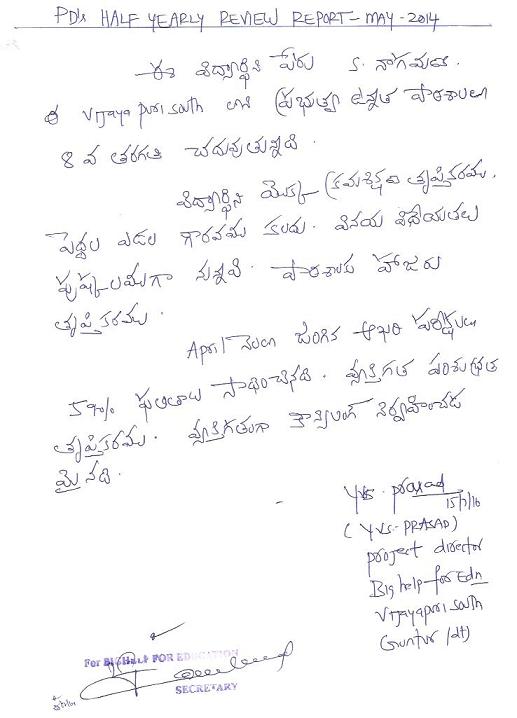 PD's HALF YEARLY REVIEW REPORT - MAY - 2014
ఈ విద్యార్థిని పేరు K. నాగమణి.
ఈ Vijayapuri south లోని ప్రభుత్వ ఉన్నత పాఠశాలలో
8 వ తరగతి చదువుతున్నది.
విద్యార్థిని యొక్క క్రమశిక్షణ తృప్తికరము.
పెద్దల ఎడల గౌరవము కలదు. వినయ విధేయతలు
పుష్కలముగా నున్నవి. పాఠశాలకు హాజరు
తృప్తికరము.
April నెలలో జరిగిన ఆఖరి పరీక్షలలో
59% ఫలితాలు సాధించినది. వ్యక్తిగత పరిశుభ్రత
తృప్తికరము. వ్యక్తిగతంగా కౌన్సిలింగ్ నిర్వహించడ
మైనది.
Yvs. prasad
(YVS. PRASAD)
project director
Big help for Edn
Vijayapuri south
Guntur (dt)
For BIGHELP FOR EDUCATION
SECRETARY